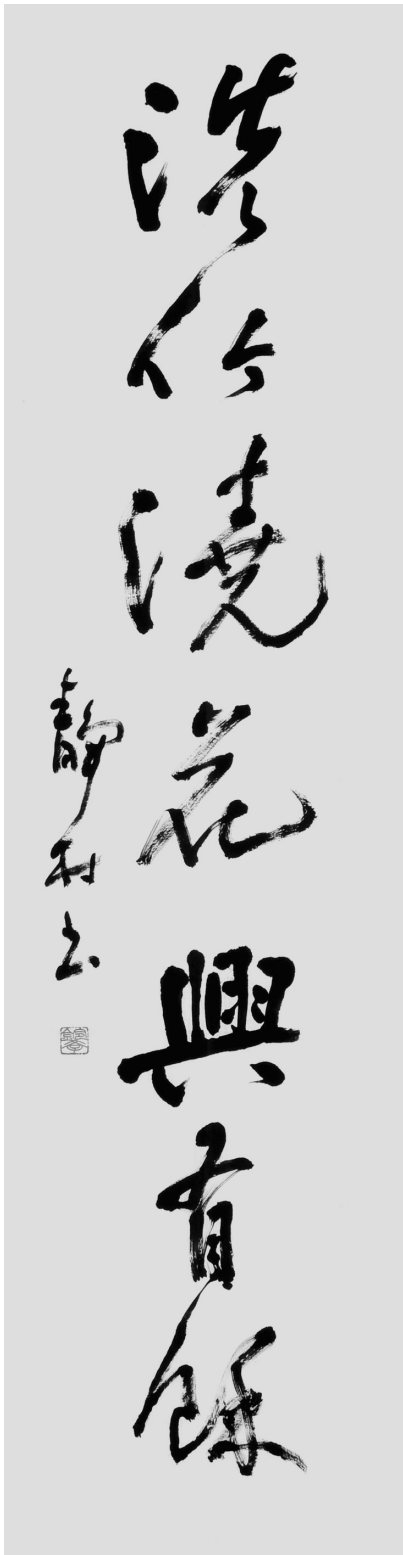 洗竹澆花興有餘
靜村書